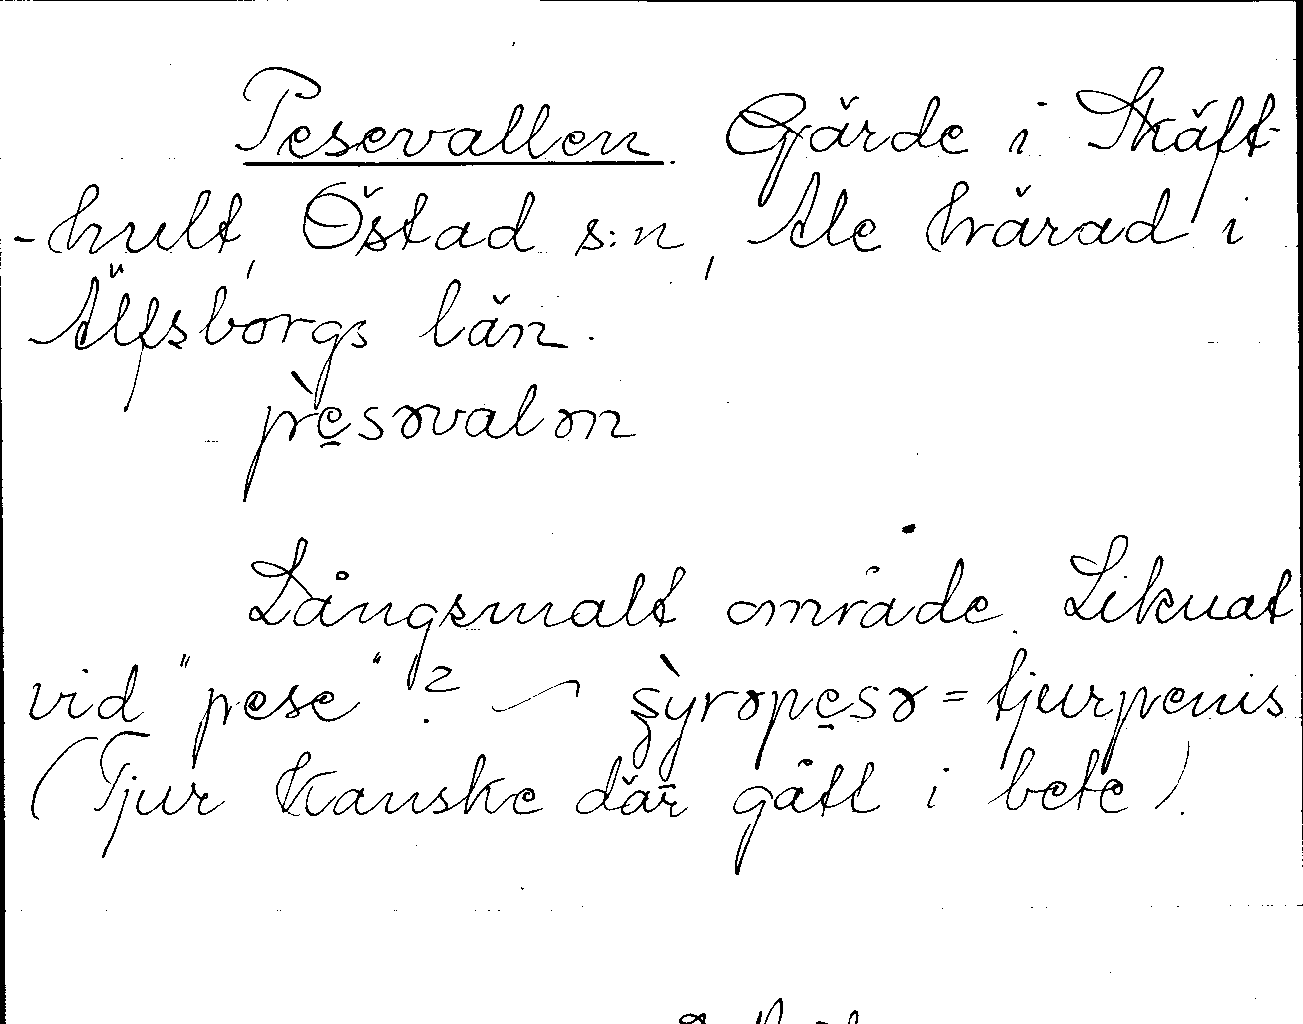 Pesevallen. Gärde i Skäft-
-hult, Östad s:n, Ale härad i
Älfsborgs län.
pèsəvalən
Långsmalt område. Liknat
vid "pese"? ~ ʂỳrəpesə = tjurpenis
(Tjur kanske där gått i bete).